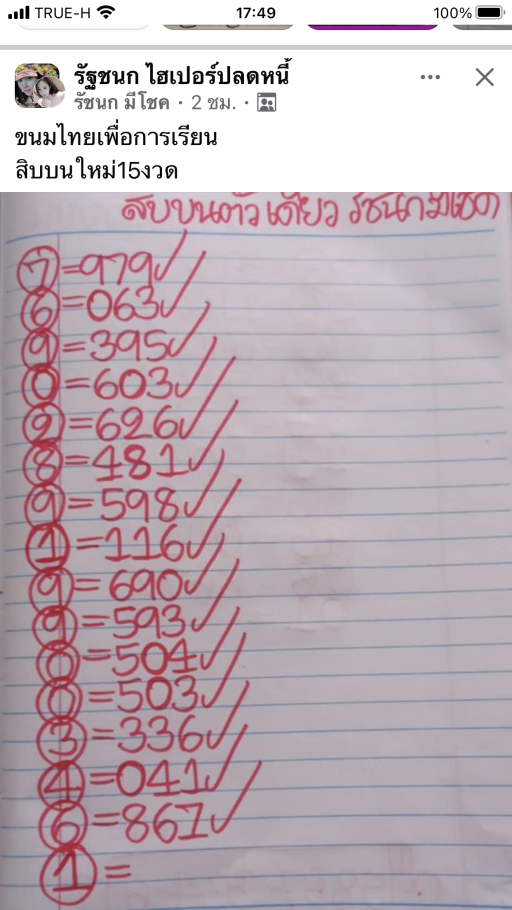 TRUE-H 17:49 100%
รัฐชนก ไฮเปอร์ปลดหนี้
รัชนก มีโชค · 2 ชม. ·
ขนมไทยเพื่อการเรียน
สิบบนใหม่15งวด
สิบบนตัวเดียว รัชนก มีโชค
7=979✓
6=063✓
9=395✓
0=603✓
2=626✓
8=481✓
9=598✓
1=116✓
9=690✓
9=593✓
0=504✓
0=503✓
3=336✓
4=041✓
6=861✓
1=